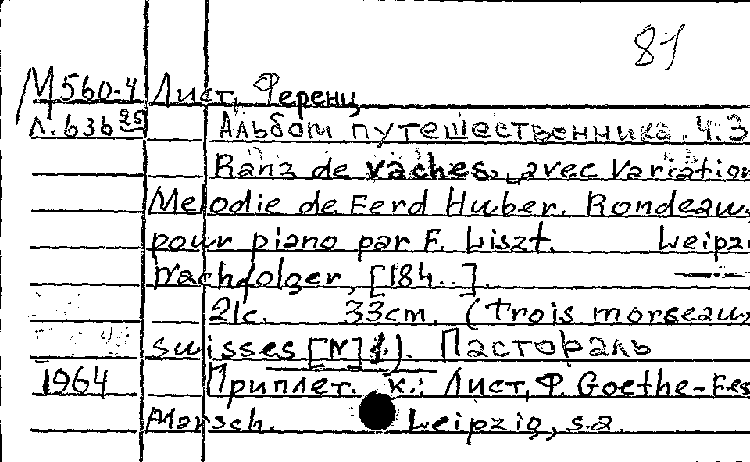 81
М560-4 Лист, Ференц
Л.636 Альбом путешественника. Ч.3
Ranz de vaches, avec Variation
Melodie de Ferd Huber. Rondeau
pour piano par F. Liszt. Leipzi
Nachfolger, [184..].
21с. 33cm. (Trois morseaux
suisses [N]1). Пастораль
1964 Приплет. к.: Лист, Ф. Goethe-Fes
Marsch. Leipzig, s.a.